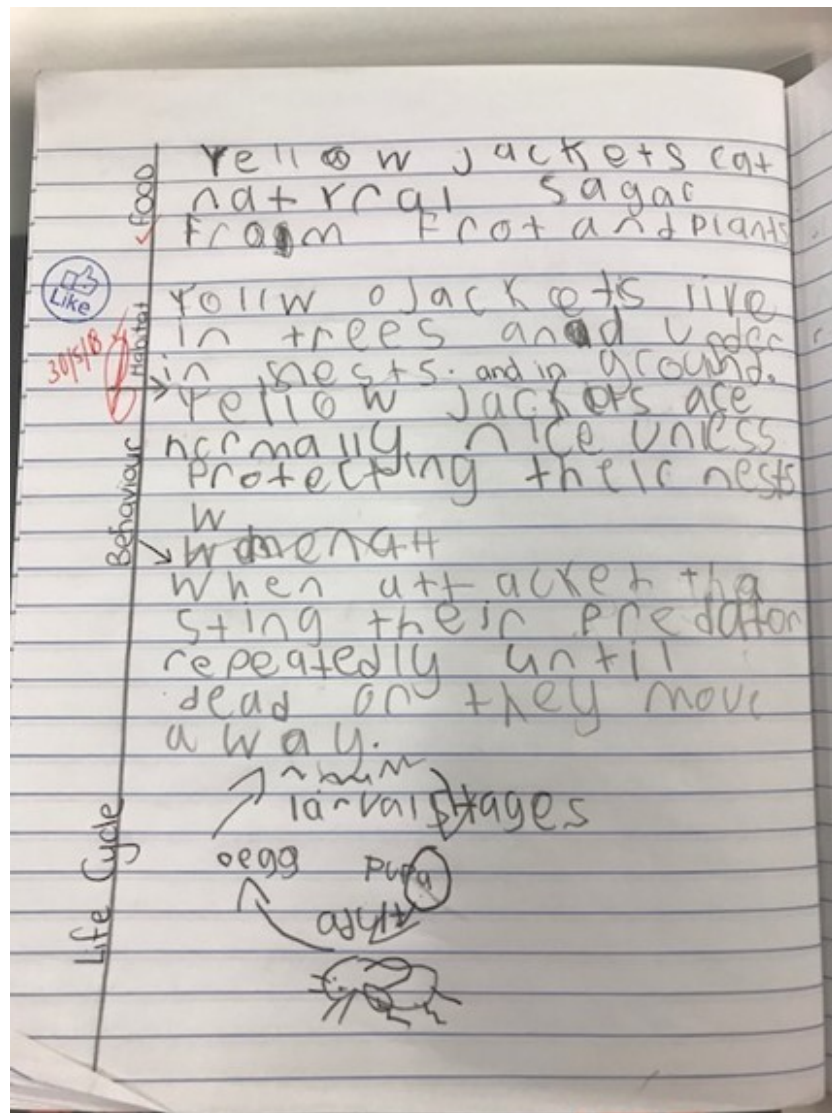 Food
Yellow jackets eat
natrral sagar
from frot and plants
Like
30/5/18
Habitat
Yollw Jackeets live
in trees and under
in nests. and in ground.
Behaviour
Yellow jackets are
normally nice unless
Protecting their nests
W
When attacket tha
sting their predator
repeatedly until
dead or they move
away.
Life Cycle
larval stages
egg pupa
adult